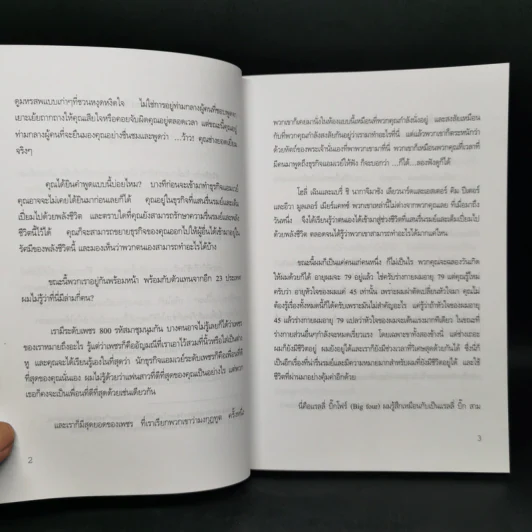 ดูมหรสพแบบเก่าๆที่ชวนหงุดหงิดใจ ไม่ใช่การอยู่ท่ามกลางผู้คนที่ชอบพูดจา
เยาะเย้ยถากถางให้คุณเสียใจหรือคอยจับผิดคุณอยู่ตลอดเวลา แต่ขณะนี้คุณอยู่
ท่ามกลางผู้คนที่จะยืนมองคุณอย่างชื่นชมและพูดว่า ...ว้าว! คุณช่างยอดเยี่ยม
จริงๆ
คุณได้ยินคำพูดแบบนี้บ่อยไหม? บางทีก่อนจะเข้ามาทำธุรกิจแอมเวย์
คุณอาจจะไม่เคยได้ยินมาก่อนเลยก็ได้ คุณอยู่ในธุรกิจที่แสนรื่นรมย์และเต็ม
เปี่ยมไปด้วยพลังชีวิต และตราบใดที่คุณยังสามารถรักษาความรื่นรมย์และพลัง
ชีวิตนี้ไว้ได้ คุณก็จะสามารถขยายธุรกิจของคุณออกไปให้ผู้อื่นได้เข้ามาอยู่ใน
รัศมีของพลังชีวิตนี้ และมองเห็นว่าพวกตนเองสามารถทำอะไรได้บ้าง
ขณะนี้พวกเราอยู่กันพร้อมหน้า พร้อมกับตัวแทนจากอีก 23 ประเทศ
ผมไม่รู้ว่าที่นี่มีล่ามกี่คน?
เรามีระดับเพชร 800 รหัสมาชุมนุมกัน บางคนอาจไม่รู้เลยก็ได้ว่าเพชร
ของเราหมายถึงอะไร รู้แต่ว่าเพชรก็คืออัญมณีที่เราเอาไว้สวมที่นิ้วหรือไม่ก็เป็นต่าง
หู และคุณจะได้เรียนรู้เองในที่สุดว่า นักธุรกิจแอมเวย์ระดับเพชรก็คือเพื่อนที่ดี
ที่สุดของคุณนั่นเอง ผมไม่รู้ด้วยว่าแฟนสาวที่ดีที่สุดของคุณเป็นอย่างไร แต่พวก
เธอก็คงจะเป็นเพื่อนที่ดีที่สุดด้วยเช่นเดียวกัน
และเราก็มีสุดยอดของเพชร ที่เราเรียกพวกเขาว่ามงกุฎทูต ครั้งหนึ่ง
2
พวกเขาก็เคยมานั่งในห้องแบบนี้เหมือนที่พวกคุณกำลังนั่งอยู่ และสงสัยเหมือน
กับที่พวกคุณกำลังสงสัยกันอยู่ว่าเรามาทำอะไรที่นี่ แต่แล้วพวกเขาก็ตระหนักว่า
ด้วยหัตถ์ของพระเจ้านั่นเองที่พาพวกเขามาที่นี่ พวกเขาก็เหมือนพวกคุณเวลาที่
มีคนมาพูดถึงธุรกิจแอมเวย์ให้ฟัง ก็จะบอกว่า ...ก็ได้...ลองฟังดูก็ได้
โฮลี่ เฉินและแบรี่ ชิ นากาจิมาซัง เลียวนาร์ดและเอสเตอร์ คิม ปีเตอร์
และอีวา มูลเลอร์ เมียร์แคทซ์ พวกเขาเหล่านี้ไม่ต่างจากพวกคุณเลย ที่เมื่อมาถึง
วันหนึ่ง จึงได้เรียนรู้ว่าตนเองได้เข้ามาอยู่ช่วงชีวิตที่แสนรื่นรมย์และเต็มเปี่ยมไป
ด้วยพลังชีวิต ตลอดจนได้รู้ว่าพวกเขาสามารถทำอะไรได้มากแค่ไหน
ขณะนี้ผมก็เป็นแค่คนแก่คนหนึ่ง ก็ไม่เป็นไร พวกคุณจะฉลองวันเกิด
ให้ผมด้วยก็ได้ อายุผมจะ 79 อยู่แล้ว ใช่ครับร่างกายผมอายุ 79 แต่คุณรู้ไหม
ครับว่า อายุหัวใจของผมแค่ 45 เท่านั้น เพราะผมผ่าตัดเปลี่ยนหัวใจมา คุณไม่
ต้องรู้เรื่องทั้งหมดนี้ก็ได้ครับเพราะมันไม่สำคัญอะไร แต่รู้ว่าถ้าหัวใจของผมอายุ
45 แล้วร่างกายผมอายุ 79 แปลว่าหัวใจของผมจะเดินแรงมากทีเดียว ในขณะที่
ร่างกายส่วนอื่นๆกำลังจะหมดเรี่ยวแรง โดยเฉพาะขาทั้งสองข้างนี้ แต่ช่างเถอะ
ผมก็ยังมีชีวิตอยู่ ผมยังอยู่ได้และเราก็ยังมีช่วงเวลาที่วิเศษสุดด้วยกันได้ ซึ่งนี่ก็
เป็นอีกเรื่องที่น่ารื่นรมย์และมีความหมายมากสำหรับผมที่ยังมีชีวิตอยู่ได้ และใช้
ชีวิตที่ผ่านมาอย่างคุ้มค่าอีกด้วย
นี่คือแรลลี่ บิ๊กโฟร์ (Big four) ผมรู้สึกเหมือนกับเป็นแรลลี่ บิ๊ก สาม
3